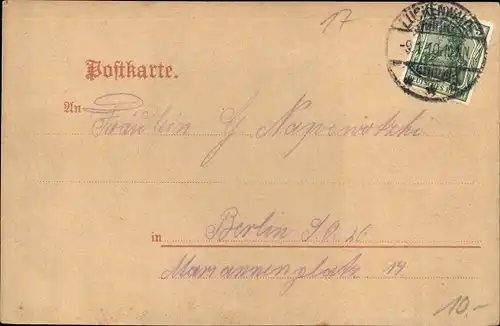 17
LUCKENWALDE
Postkarte.
An Fräulein G Napiwotzki
in Berlin S.O. 26
Mariannenplatz 19
10.-